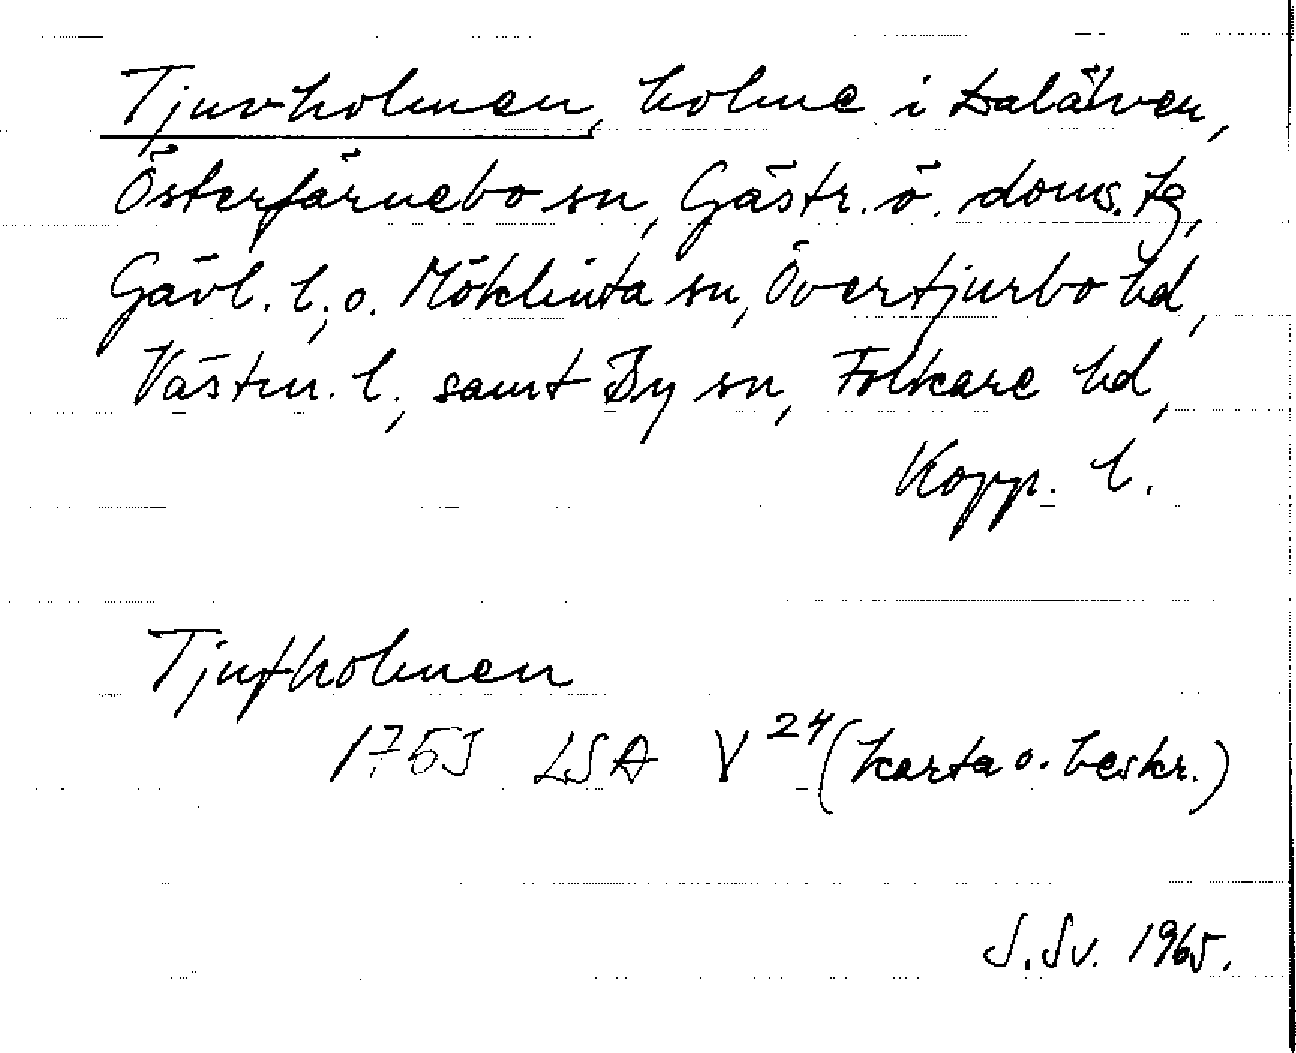 Tjuvholmen, holme i Dalälven,
Österfärnebo sn, Gästr. ö. doms. tg,
Gävl. l., o. Möklinta sn, Övertjurbo hd,
Västm. l., samt By sn, Folkare hd,
Kopp. l.
Tjufholmen
1753 LSA V 24 (karta o. beskr.)
S. Sv. 1965.